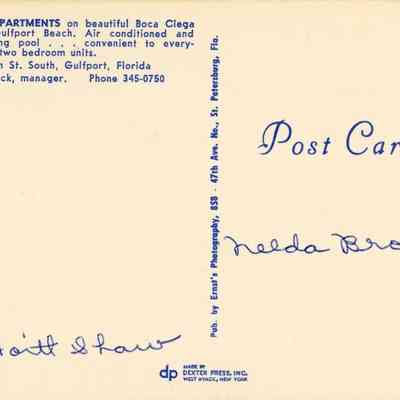 PARTMENTS on beautiful Boca Ciega
ulfport Beach. Air conditioned and
ng pool . . . convenient to every-
two bedroom units.
h St. South, Gulfport, Florida
ck, manager. Phone 345-0750
Pub. by Ernst's Photography, 858 - 47th Ave. No., St. Petersburg, Fla.
Post Car
Nelda Bro
Shaw
dp MADE BY
DEXTER PRESS, INC.
WEST NYACK, NEW YORK